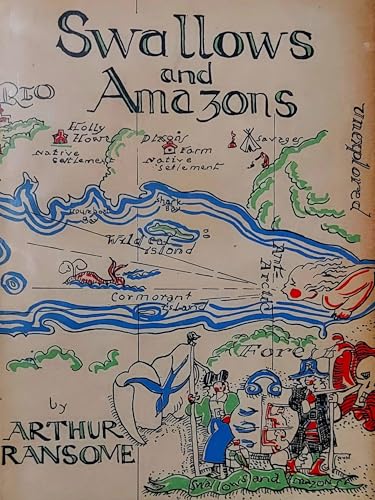 Swallows
and
Amazons
RIO
Holly
Howe
Native
Settlement
Dixon's
Farm
Native
Settlement
Savages
Unexplored
Houseboat
Bay
Shark
Bay
Wild Cat
Island
Cormorant
Island
Antarctic
Forest
by
ARTHUR
RANSOME
Swallows and AMAZONS